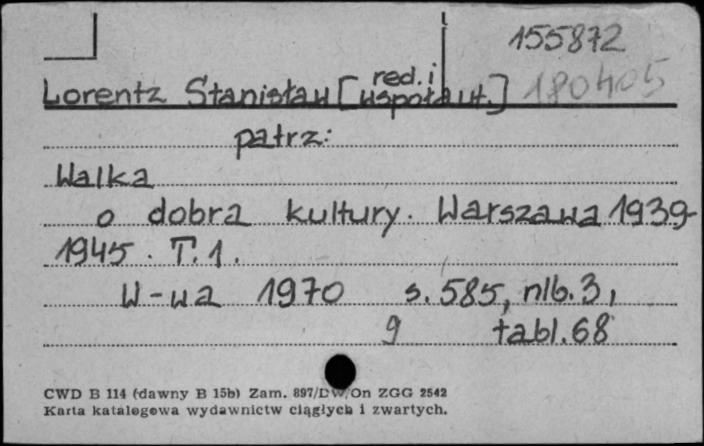 155872
Lorentz Stanisław [red. i współaut.] 180405
patrz:
Walka
o dobra kultury. Warszawa 1939-
1945. T.1.
W-wa 1970 s. 585, nlb. 3,
9 tabl. 68
CWD B 114 (dawny B 15b) Zam. 897/DW/On ZGG 2542
Karta katalogowa wydawnictw ciągłych i zwartych.